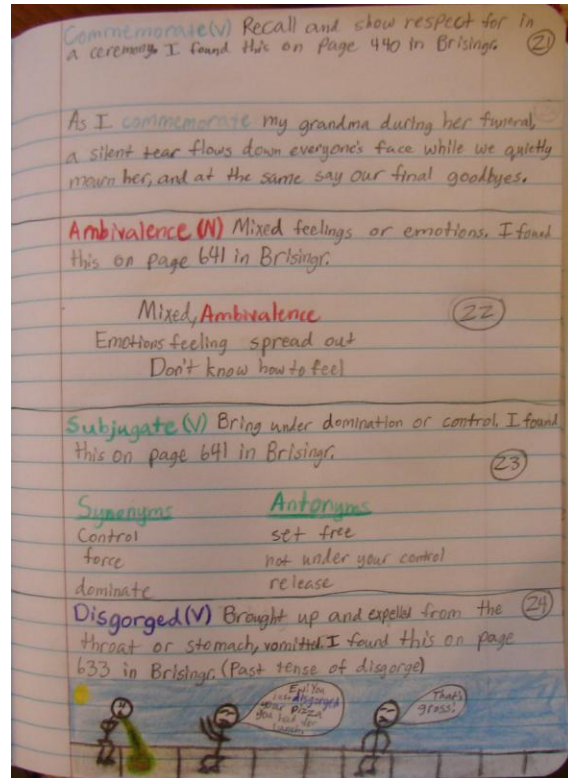 Commemorate (V) Recall and show respect for in
a ceremony. I found this on page 440 in Brisingr. 21
As I commemorate my grandma during her funeral,
a silent tear flows down everyone's face while we quietly
mourn her, and at the same say our final goodbyes.
Ambivalence (N) Mixed feelings or emotions. I found
this on page 641 in Brisingr.
Mixed, Ambivalence 22
Emotions feeling spread out
Don't know how to feel
Subjugate (V) Bring under domination or control. I found
this on page 641 in Brisingr.
23
Synonyms Antonyms
Control set free
force not under your control
dominate release
Disgorged (V) Brought up and expelled from the 24
throat or stomach, vomitted. I found this on page
633 in Brisingr. (Past tense of disgorge)
Ew! You
disgorged
your pizza
you had for
lunch
That's
gross!